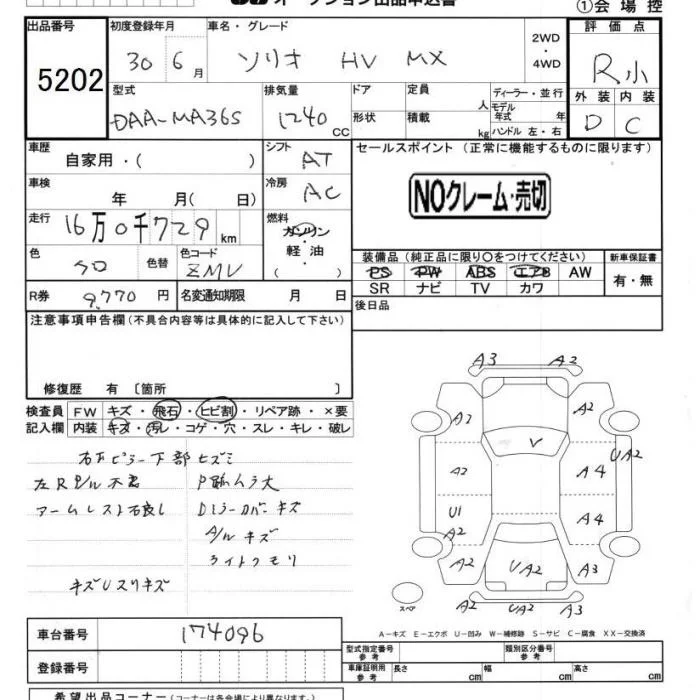 オークション出品申込書 ①会場控
出品番号 初度登録年月 車名・グレード 2WD ・4WD 評価点
5202 30 6月 ソリオ HV MX R小
型式 排気量 ドア 定員 人 ディーラー・並行 外装 内装
DAA-MA36S 1240 CC 形状 積載 kg モデル年式 年 ハンドル 左・右 D C
車歴 自家用・( ) シフト AT セールスポイント (正常に機能するものに限ります)
車検 年 月( 日) 冷房 AC NOクレーム・売切
走行 16万0千729km 燃料 ガソリン 軽油 ( )
色 シロ 色替 色コード ZMV 装備品 (純正品に限り○をつけてください) 新車保証書
PS PW ABS エアB AW 有・無
SR ナビ TV カワ
R券 9,770円 名変通知期限 月 日 後日品
注意事項申告欄(不具合内容等は具体的に記入して下さい)
修復歴 有 〔箇所 〕
検査員 FW キズ・飛石・ヒビ割・リペア跡・×要
記入欄 内装 キズ・汚レ・コゲ・穴・スレ・キレ・破レ
右Fピラー下部ヒズミ
左RP/ル不良
アームレスト右良し
Dミラーカバーキズ
A/Wキズ
ライトクモリ
キズUスリキズ
A3 A2
A2 A2
V UA2
A2 A4
U1 A2 A4
A2 UA2 A3
A2 A3
スペア
A-キズ E-エクボ U-凹み W-補修跡 S-サビ C-腐食 XX-交換済
車台番号 174096
登録番号
型式指定番号 参考 類別区分番号 参考
車庫証明用 参考 長さ cm 幅 cm 高さ cm
希望出品コーナー (コーナーは各会場により異なります)